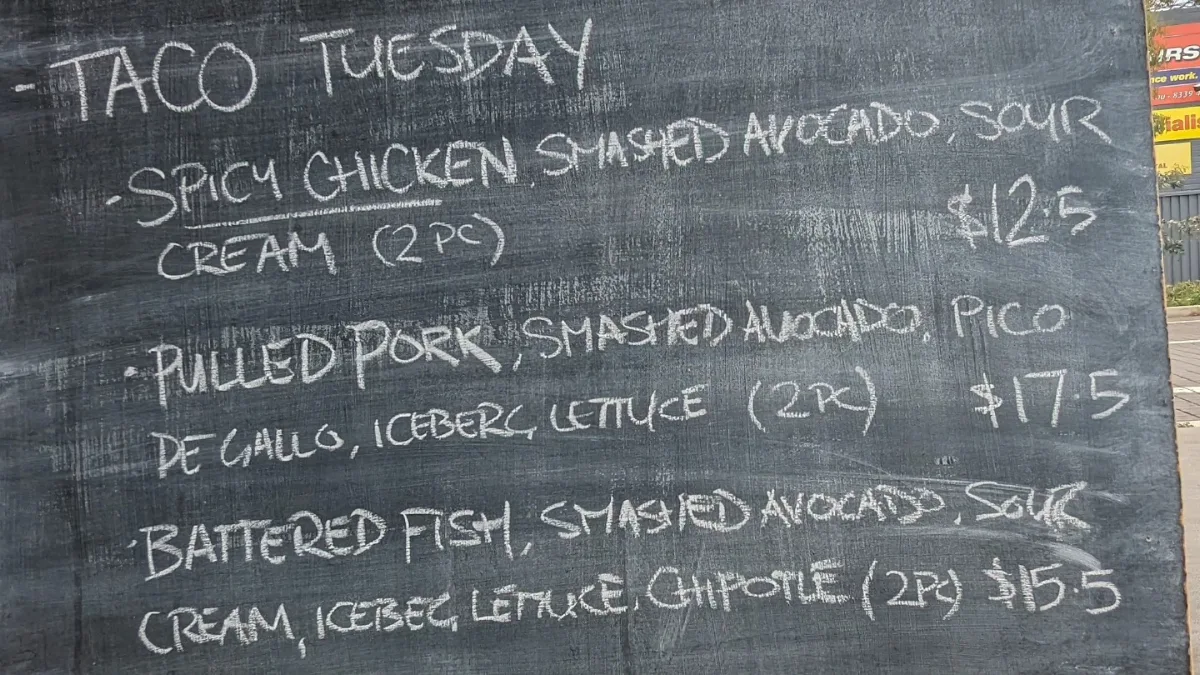 - TACO TUESDAY
· SPICY CHICKEN, SMASHED AVOCADO, SOUR
CREAM (2 PC) $12.5
· PULLED PORK, SMASHED AVOCADO, PICO
DE GALLO, ICEBERG LETTUCE (2PC) $17.5
· BATTERED FISH, SMASHED AVOCADO, SOUR
CREAM, ICEBEG LETTUCE, CHIPOTLE (2PC) $15.5
nce work.
8339
ialis